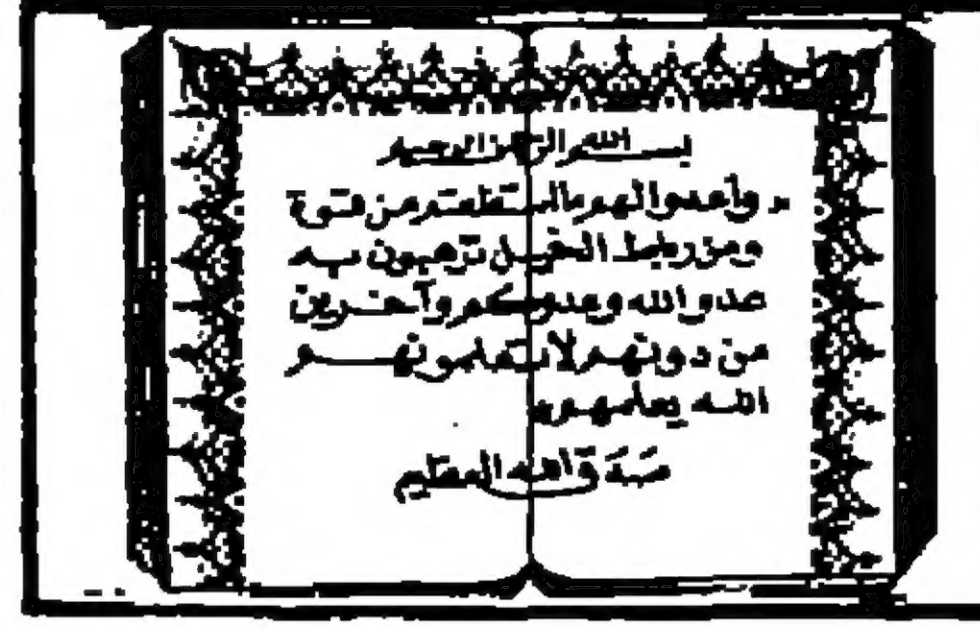 بسم الله الرحمن الرحيم
« وأعدوا لهم ما استطعتم من قوة
ومن رباط الخيل ترهبون به
عدو الله وعدوكم وآخرين
من دونهم لا تعلمونهم
الله يعلمهم»
صَدَقَ الله العظيم